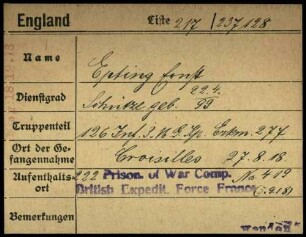 England Liste 217 / 237128
Name Epting Ernst
Dienstgrad Schütze geb. 22.4. 99
Truppenteil 126 Inf. Erkm. 277
Ort der Ge-
fangennahme Croisilles 27.8.18.
Aufenthalts- 222 Prison. of War Comp. No. 419
ort British Expedit. Force France
Bemerkungen